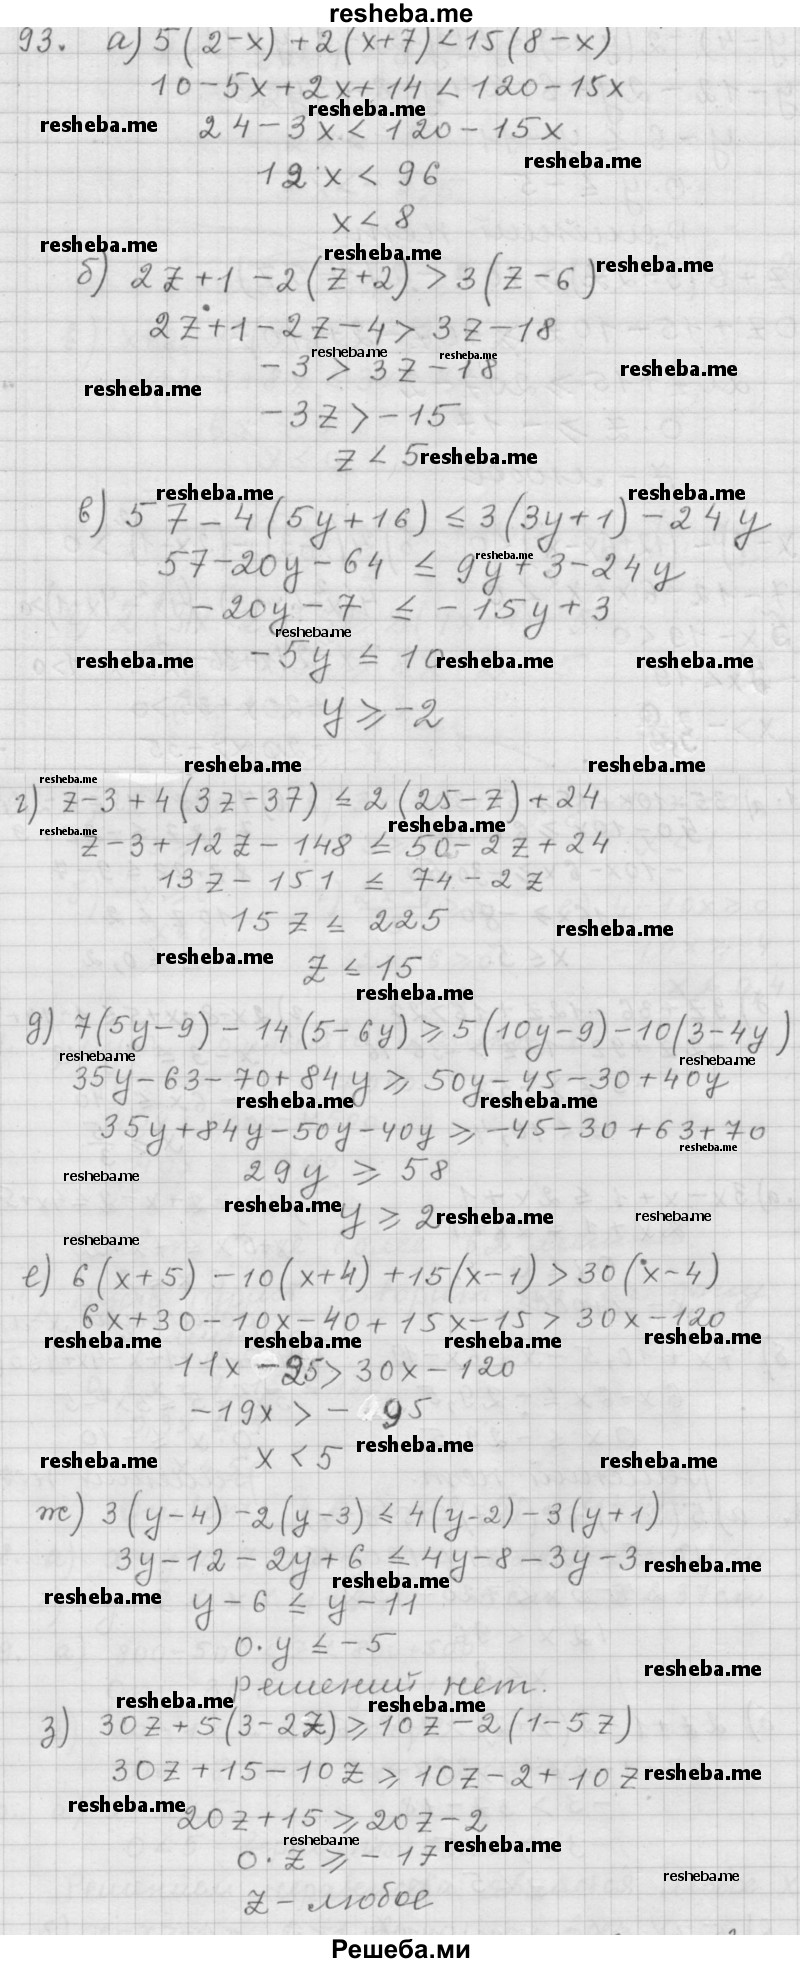 resheba.me
93. а) 5(2-x)+2(x+7)<15(8-x)
10-5x+2x+14<120-15x
resheba.me
resheba.me
24-3x<120-15x
resheba.me
12x<96
x<8
resheba.me
resheba.me
resheba.me
б) 2z+1-2(z+2)>3(z-6)
2z+1-2z-4>3z-18
resheba.me
resheba.me
-3>3z-18
resheba.me
resheba.me
-3z>-15
z<5
resheba.me
resheba.me
resheba.me
в) 57-4(5y+16)≤3(3y+1)-24y
resheba.me
57-20y-64≤9y+3-24y
-20y-7≤-15y+3
resheba.me
-5y≤10
resheba.me
resheba.me
resheba.me
y≥-2
resheba.me
resheba.me
resheba.me
г) z-3+4(3z-37)≤2(25-z)+24
resheba.me
resheba.me
z-3+12z-148≤50-2z+24
13z-151≤74-2z
15z≤225
resheba.me
resheba.me
z≤15
resheba.me
д) 7(5y-9)-14(5-6y)≥5(10y-9)-10(3-4y)
resheba.me
resheba.me
35y-63-70+84y≥50y-45-30+40y
resheba.me
resheba.me
35y+84y-50y-40y≥-45-30+63+70
resheba.me
29y≥58
resheba.me
resheba.me
y≥2
resheba.me
resheba.me
resheba.me
е) 6(x+5)-10(x+4)+15(x-1)>30(x-4)
6x+30-10x-40+15x-15>30x-120
resheba.me
resheba.me
resheba.me
resheba.me
11x-25>30x-120
-19x>-95
resheba.me
x<5
resheba.me
resheba.me
ж) 3(y-4)-2(y-3)≤4(y-2)-3(y+1)
3y-12-2y+6≤4y-8-3y-3
resheba.me
resheba.me
resheba.me
y-6≤y-11
0·y≤-5
resheba.me
решений нет.
resheba.me
resheba.me
з) 30z+5(3-2z)≥10z-2(1-5z)
30z+15-10z≥10z-2+10z
resheba.me
resheba.me
20z+15≥20z-2
resheba.me
resheba.me
0·z≥-17
resheba.me
z-любое
Решеба.ми